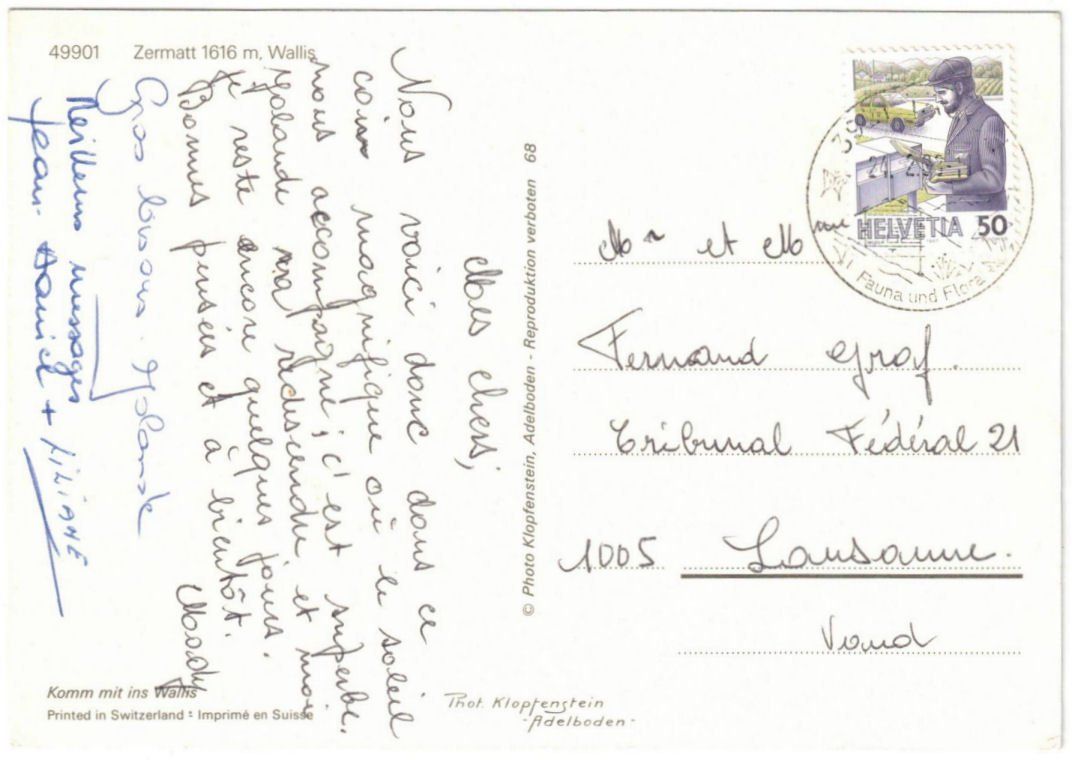 49901 Zermatt 1616 m, Wallis
Mes chers,
Nous voici donc dans ce
coin magnifique où le soleil
nous accompagne ; c'est superbe.
Yolande va redescendre et moi
je reste encore quelques jours.
Bonnes pensées et à bientôt.
Mady
Gros bisous. Yolande
Meilleurs messages
Jean-Daniel + LiLiANE
Komm mit ins Wallis
Printed in Switzerland - Imprimé en Suisse
© Photo Klopfenstein, Adelboden - Reproduktion verboten 68
Phot. Klopfenstein
-Adelboden-
HELVETIA 50
Fauna und Flora
Mr et Mme
Fernand Graf.
Tribunal Fédéral 21
1005 Lausanne.
Vaud